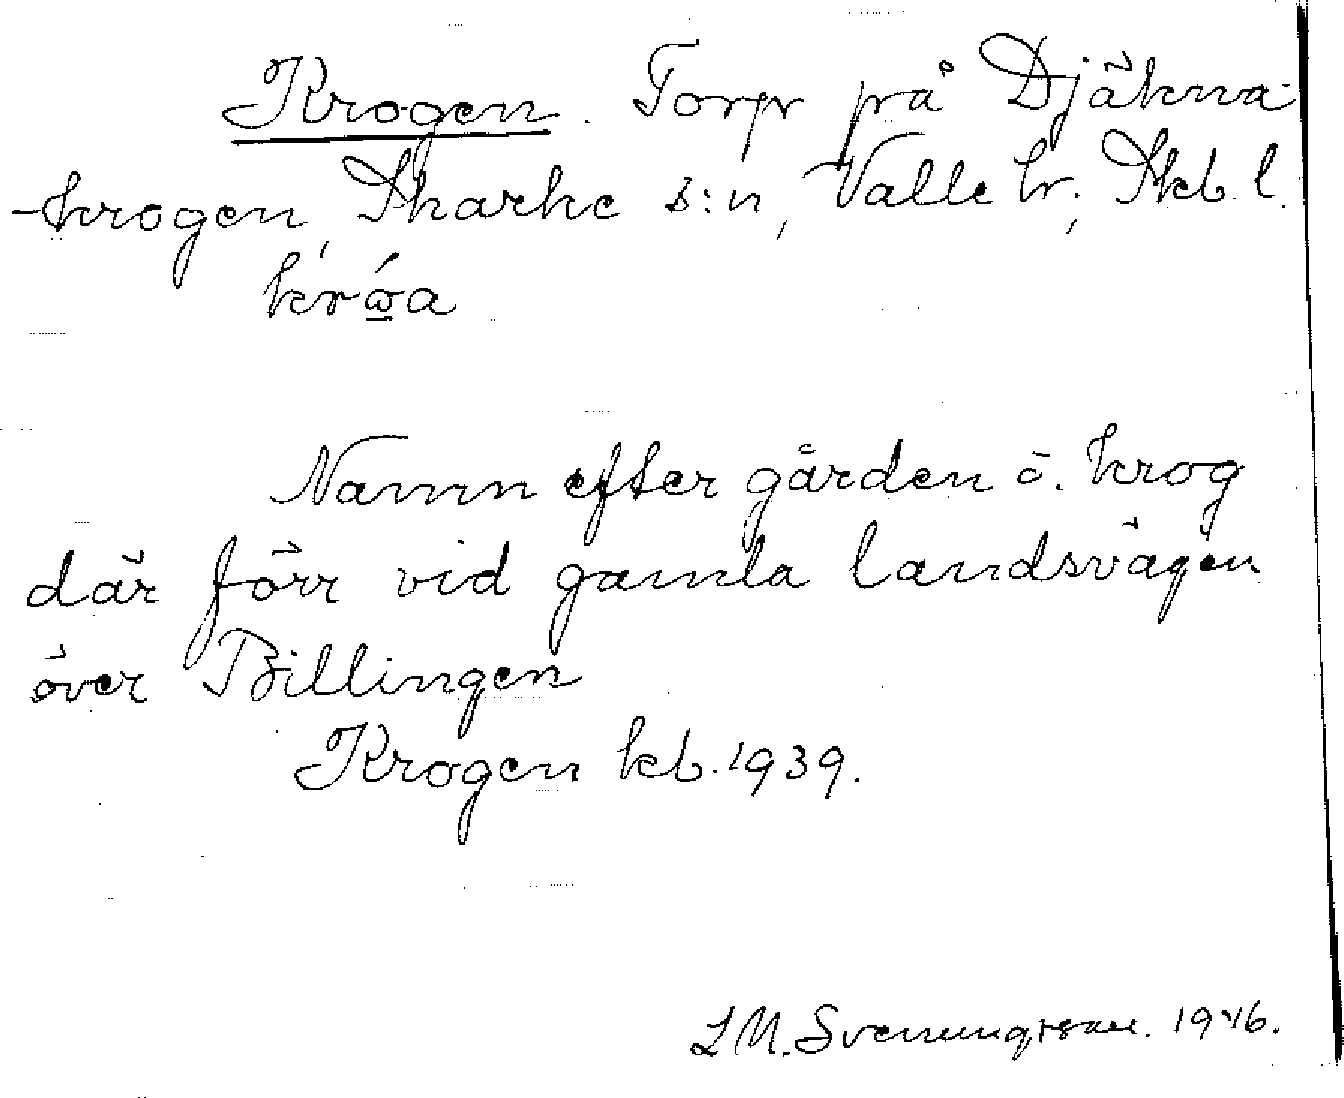 Krogen. Torp på Djäkna-
-krogen, Skarke s:n, Valle hr, Skb. l.
Namn efter gården o. krog
där förr vid gamla landsvägen
över Billingen
Krogen kb. 1939.
L M. Svenungsson. 1946.